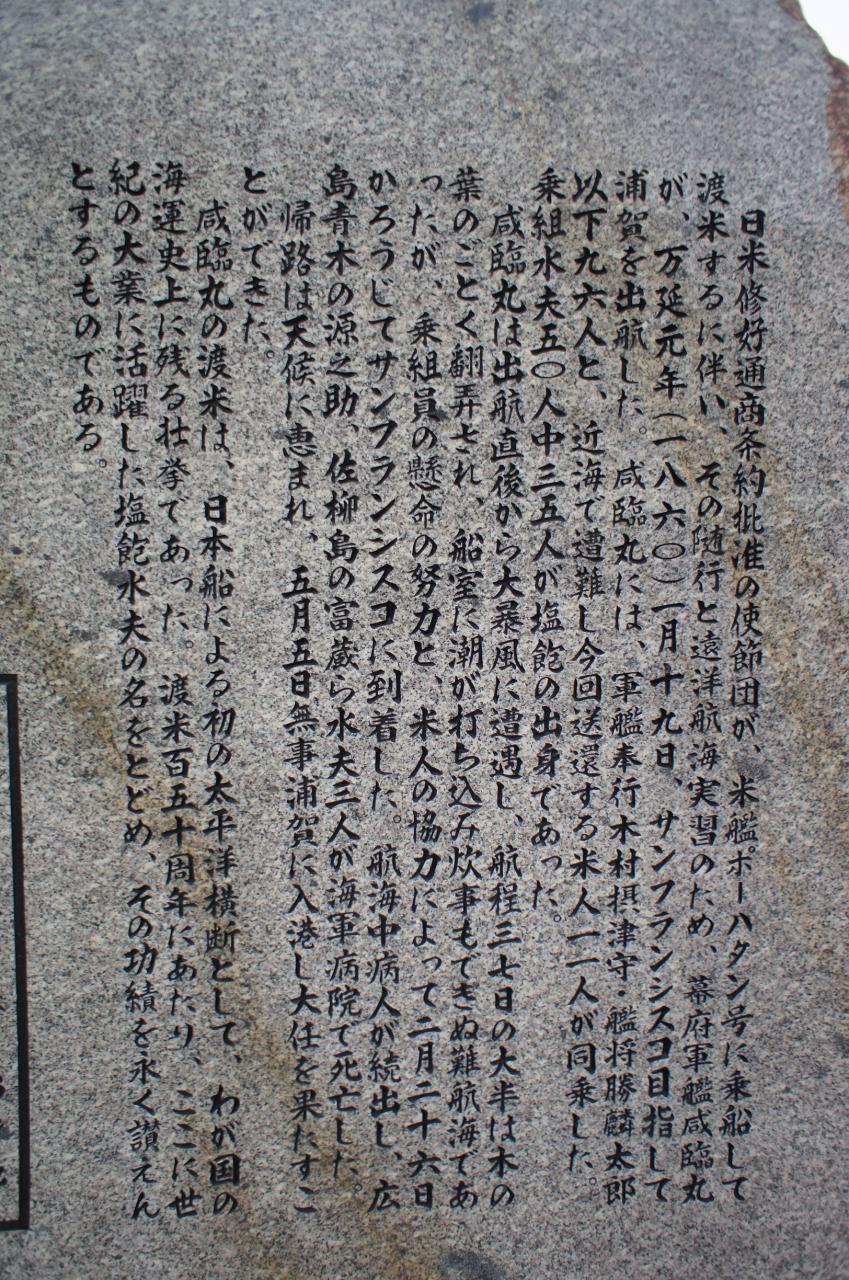 日米修好通商条約批准の使節団が、米艦ポーハタン号に乗船して
渡米するに伴い、その随行と遠洋航海実習のため、幕府軍艦咸臨丸
が、万延元年(一八六〇)一月十九日、サンフランシスコ目指して
浦賀を出航した。咸臨丸には、軍艦奉行木村摂津守・艦将勝麟太郎
以下九六人と、近海で遭難し今回送還する米人一一人が同乗した。
乗組水夫五〇人中三五人が塩飽の出身であった。
咸臨丸は出航直後から大暴風に遭遇し、航程三七日の大半は木の
葉のごとく翻弄され、船室に潮が打ち込み炊事もできぬ難航海であ
ったが、乗組員の懸命の努力と、米人の協力によって二月二十六日
かろうじてサンフランシスコに到着した。航海中病人が続出し、広
島青木の源之助、佐柳島の富蔵ら水夫三人が海軍病院で死亡した。
帰路は天候に恵まれ、五月五日無事浦賀に入港し大任を果たすこ
とができた。
咸臨丸の渡米は、日本船による初の太平洋横断として、わが国の
海運史上に残る壮挙であった。渡米百五十周年にあたり、ここに世
紀の大業に活躍した塩飽水夫の名をとどめ、その功績を永く讃えん
とするものである。